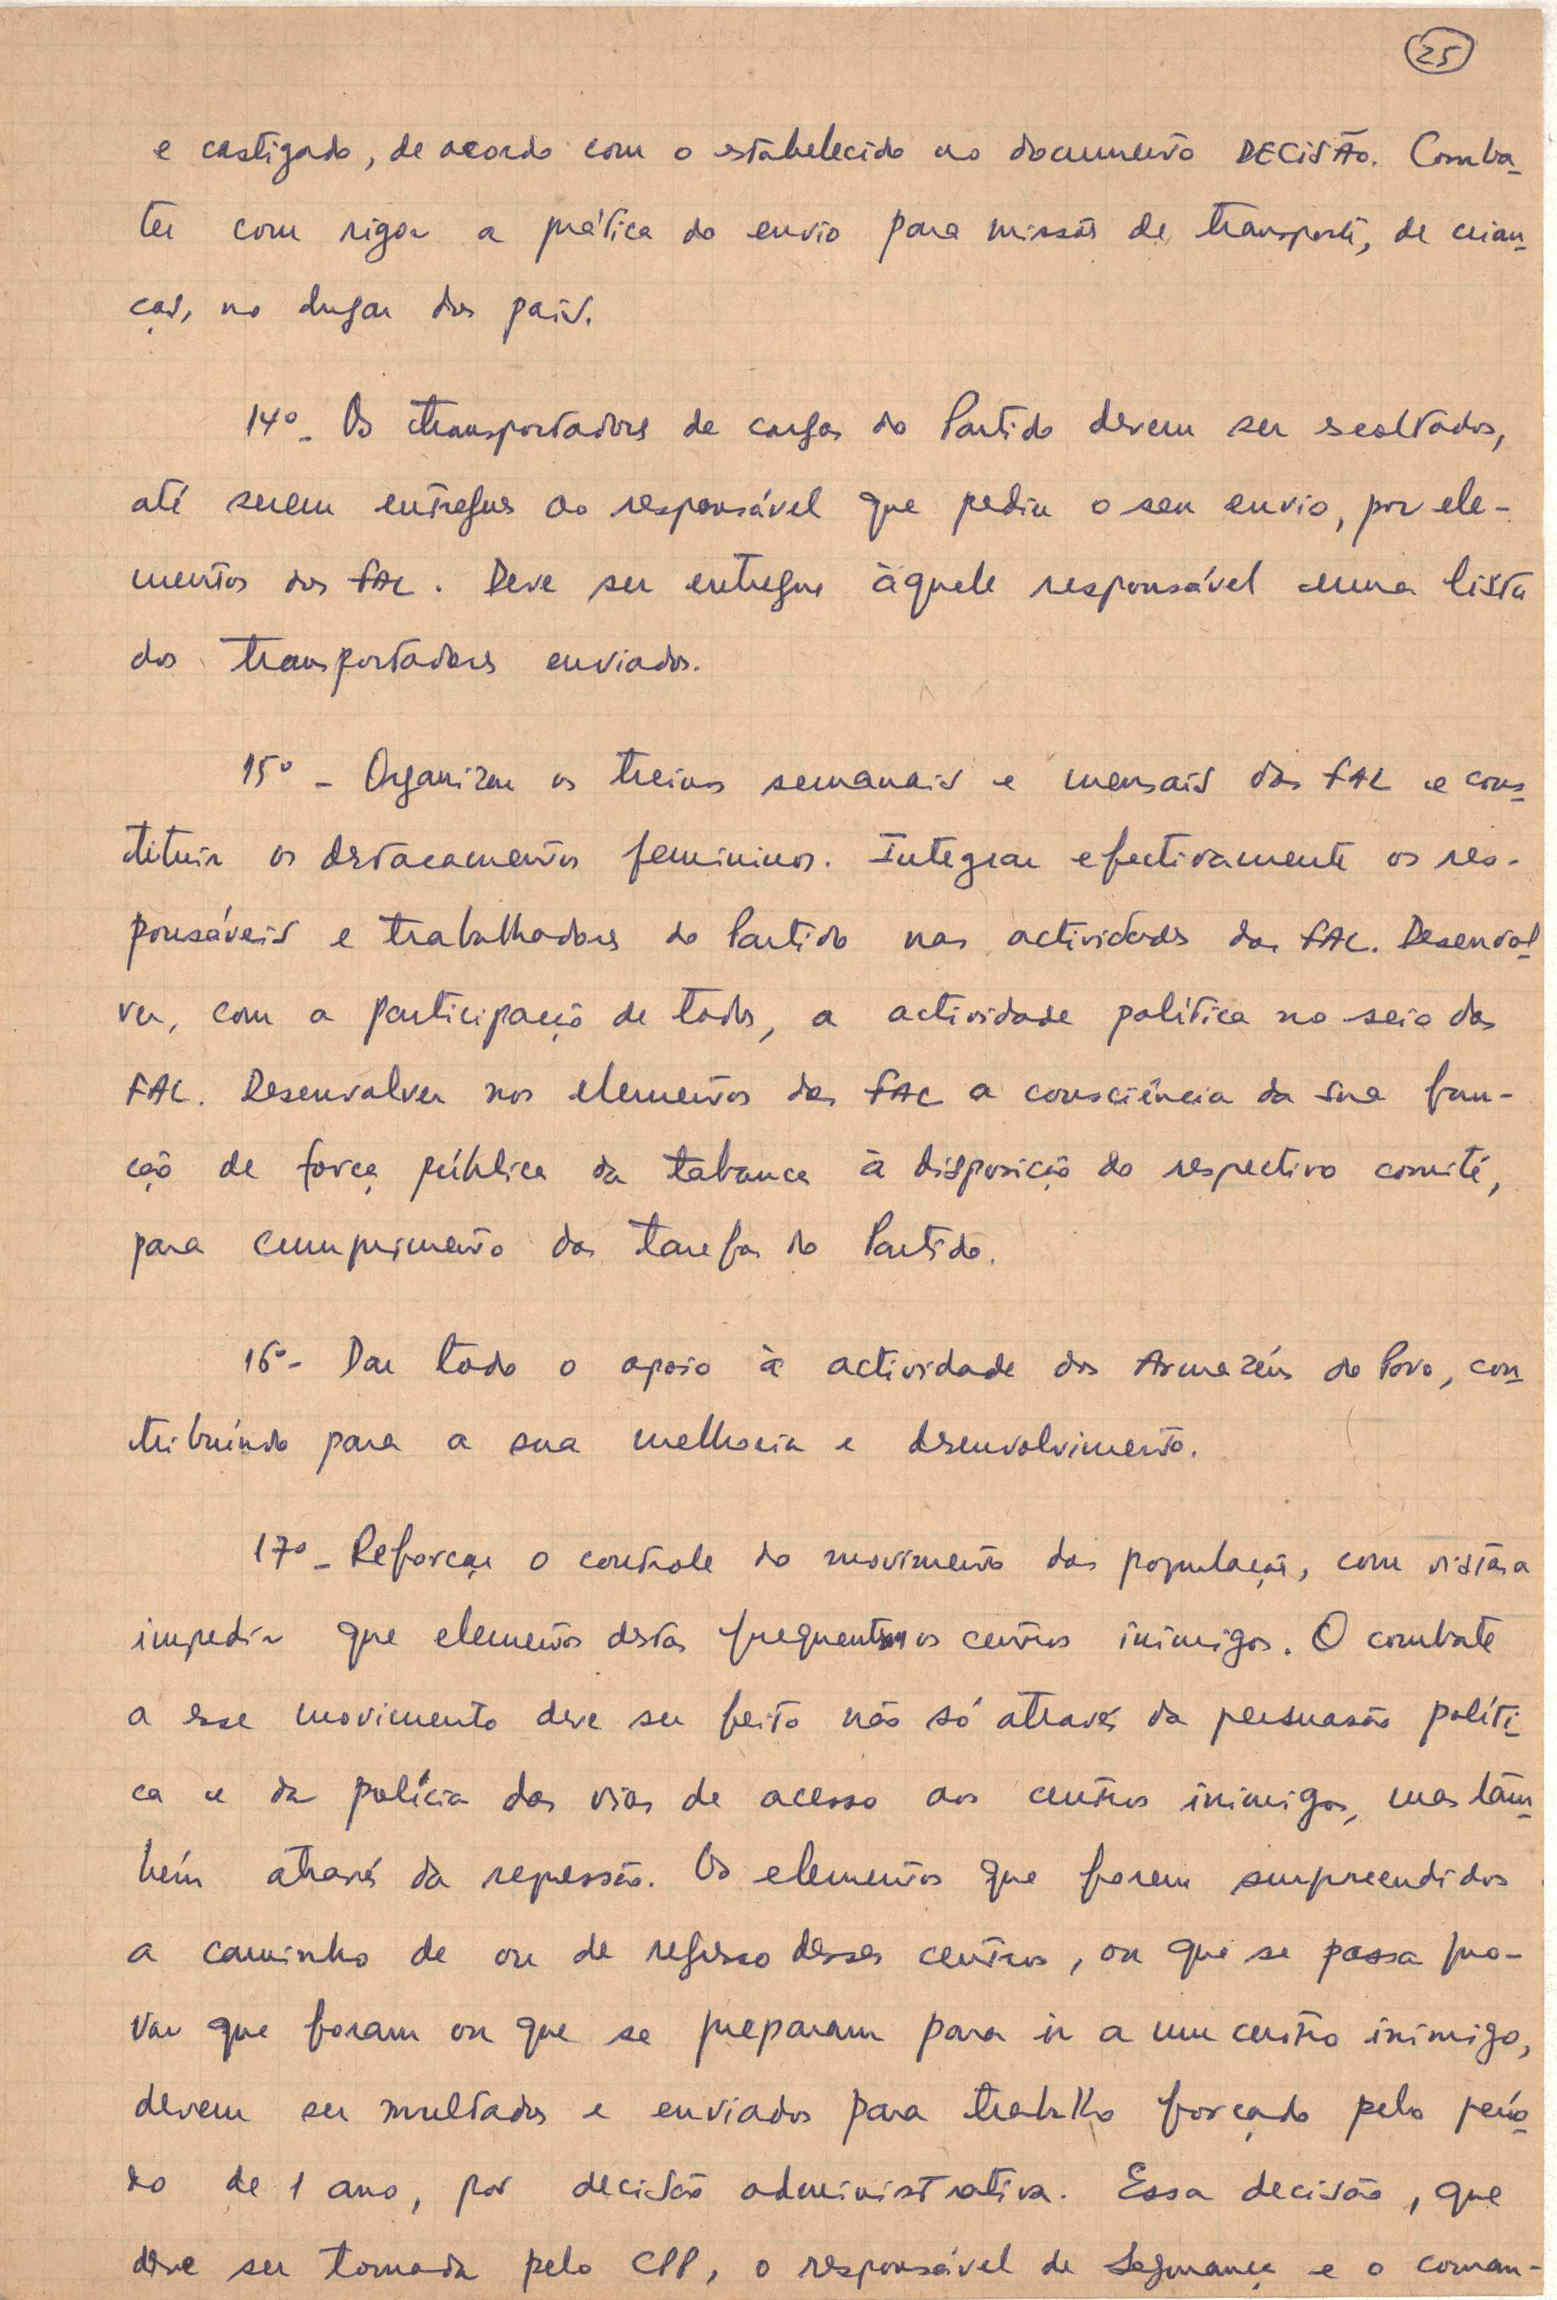 25
e castigado, de acordo com o estabelecido no documento DECISÃO. Comba-
ter com rigor a prática do envio para missões de transporte, de crian-
ças, no lugar dos pais.
14º - Os transportadores de cargas do Partido devem ser escoltados,
até serem entregues ao responsável que pediu o seu envio, por ele-
mentos das FAL. Deve ser entregue àquele responsável uma lista
dos transportadores enviados.
15º - Organizar os treinos semanais e mensais das FAL e cons-
tituir os destacamentos femininos. Integrar efectivamente os res-
ponsáveis e trabalhadores do Partido nas actividades das FAL. Desenvol-
ver, com a participação de todos, a actividade política no seio das
FAL. Desenvolver nos elementos das FAL a consciência da sua fun-
ção de força pública da tabanca à disposição do respectivo comité,
para cumprimento das tarefas do Partido.
16º - Dar todo o apoio à actividade dos Armazéns do Povo, con-
tribuindo para a sua melhoria e desenvolvimento.
17º - Reforçar o controle do movimento das populações, com vistas a
impedir que elementos destas frequentem os centros inimigos. O combate
a esse movimento deve ser feito não só através da persuasão políti-
ca e da polícia das vias de acesso aos centros inimigos, mas tam-
bém através da repressão. Os elementos que forem surpreendidos
a caminho de ou de regresso desses centros, ou que se possa pro-
var que foram ou que se preparam para ir a um centro inimigo,
devem ser multados e enviados para trabalho forçado pelo perío-
do de 1 ano, por decisão administrativa. Essa decisão, que
deve ser tomada pelo CPP, o responsável de Segurança e o coman-